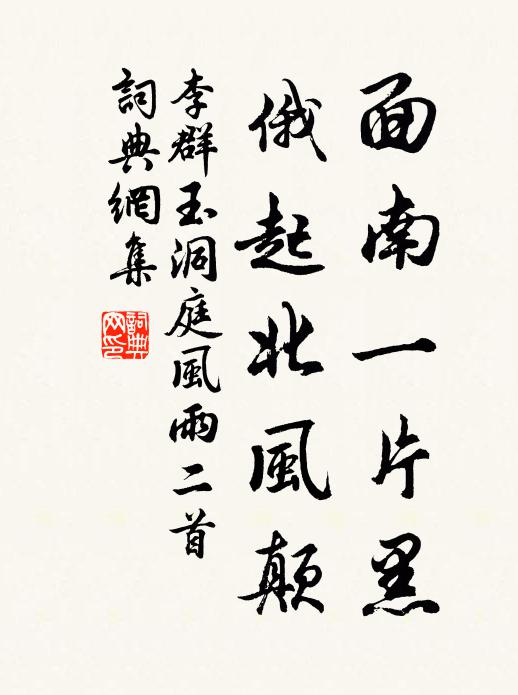 面南一片黑
俄起北風颠
李群玉洞庭風雨二首
詞典網集
詞典網印